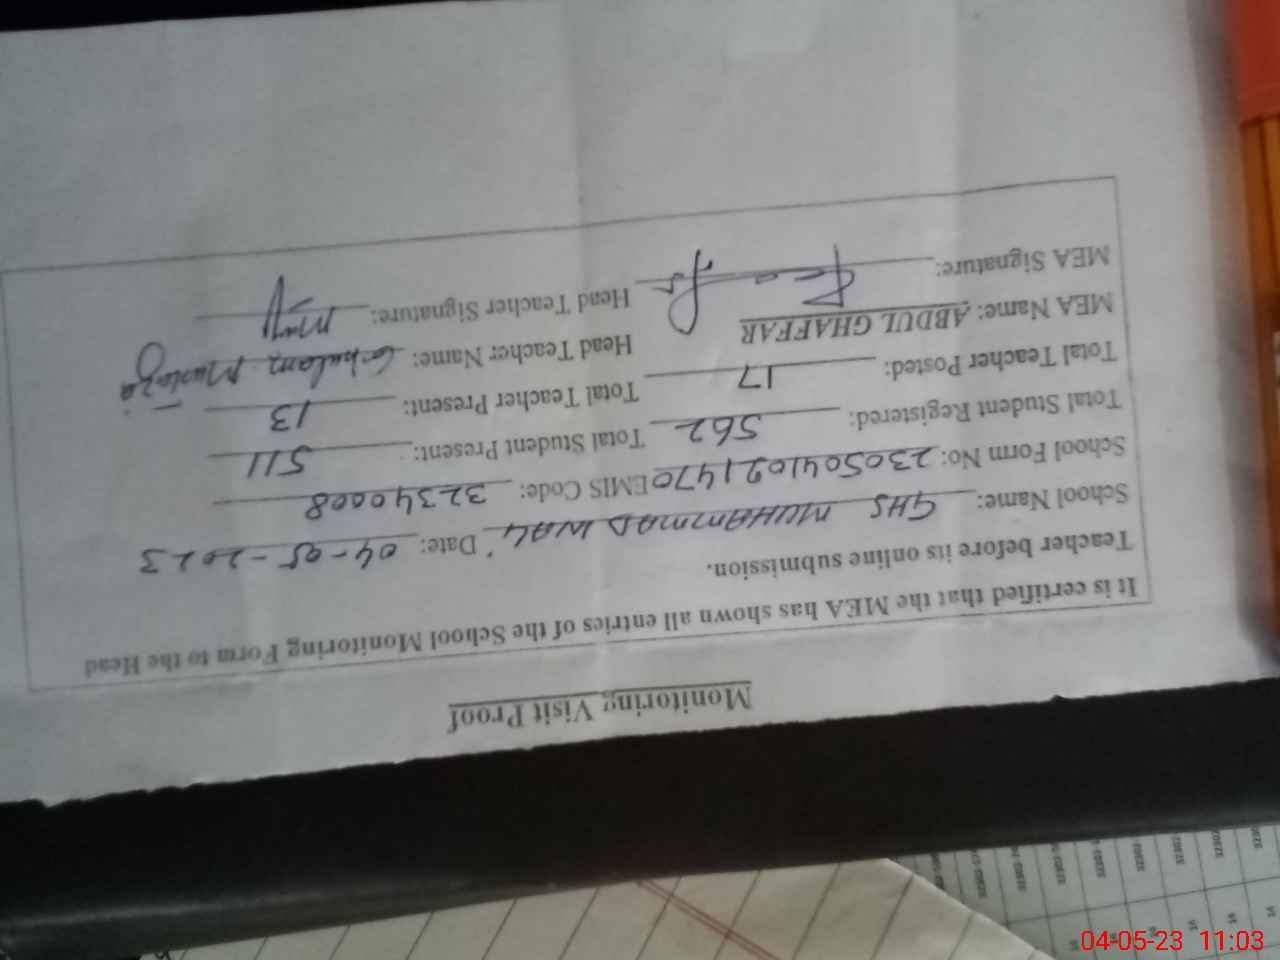 Monitoring Visit Proof
It is certified that the MEA has shown all entries of the School Monitoring Form to the Head
Teacher before its online submission.
School Name: GHS MUHAMMAD WALI Date: 04-05-2023
School Form No: 2305041021470 EMIS Code: 32340008
Total Student Registered: 562 Total Student Present: 511
Total Teacher Posted: 17 Total Teacher Present: 13
MEA Name: ABDUL GHAFFAR Head Teacher Name: Ghulam Murtaza
MEA Signature: Head Teacher Signature:
04-05-23 11:03